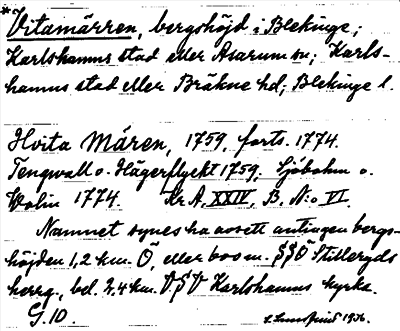 *Vitamärren, bergshöjd i Blekinge;
Karlshamns stad eller Asarum sn; Karls-
hamns stad eller Bräkne hd; Blekinge l.
Hvita Mären, 1759, forts. 1774.
Tengwall o. Hägerflycht 1759; Sjöbohm o.
Wolin 1774. Kr. A. XXIV, B. N:o VI.
Namnet synes ha avsett antingen bergs-
höjden 1,2 km. Ö, eller 600 m. SSÖ Stilleryds
herrg., bel. 3,4 km. VSV Karlshamns kyrka.
G.10. 1936.